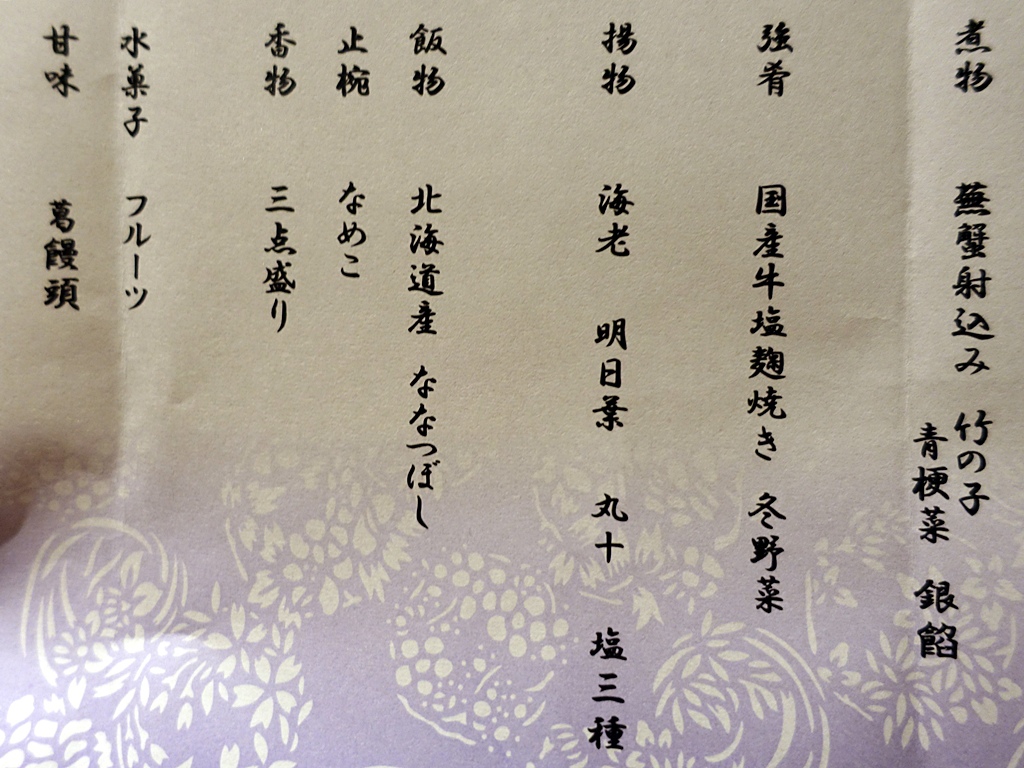 煮物 蕪蟹射込み 竹の子
青梗菜 銀餡
強肴 国産牛塩麹焼き 冬野菜
揚物 海老 明日葉 丸十 塩三種
飯物 北海道産 ななつぼし
止椀 なめこ
香物 三点盛り
水菓子 フルーツ
甘味 葛饅頭